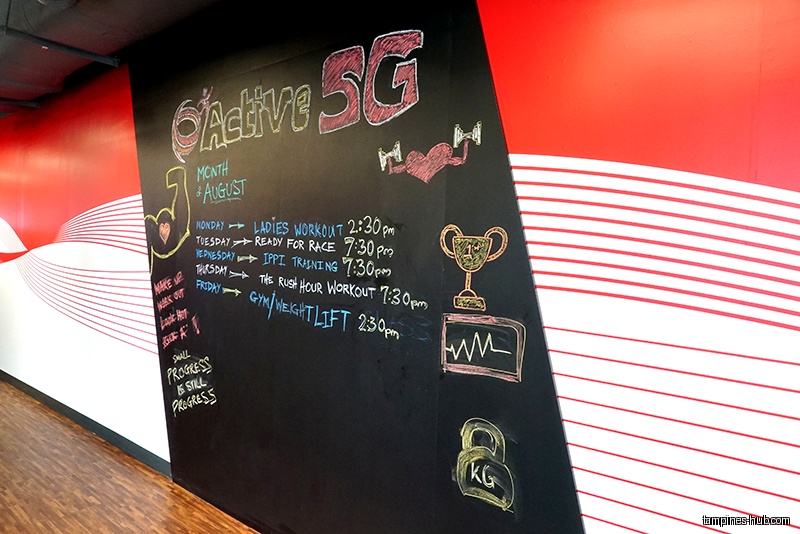 Active SG
MONTH
of AUGUST
MONDAY → LADIES WORKOUT 2:30pm
TUESDAY → READY FOR RACE 7:30pm
WEDNESDAY → IPPI TRAINING 7:30pm
THURSDAY → THE RUSH HOUR WORKOUT 7:30pm
FRIDAY → GYM/WEIGHTLIFT 2:30pm
WORK OUT
SMALL
PROGRESS
IS STILL
PROGRESS
1st
KG
tampines-hub.com